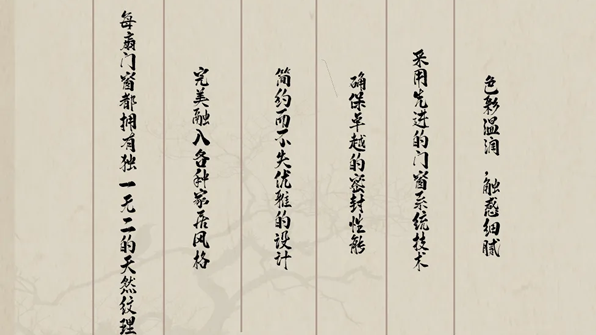 色彩温润，触感细腻
采用先进的门窗系统技术
确保卓越的密封性能
简约而不失优雅的设计
完美融入各种家居风格
每扇门窗都拥有独一无二的天然纹理